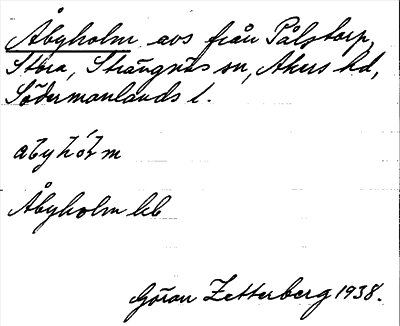 Åbyholm avs från Pålstorp,
Stora, Strängnäs sn, Åkers hd,
Södermanlands l.
Åbyholm kb
Göran Zetterberg 1938.